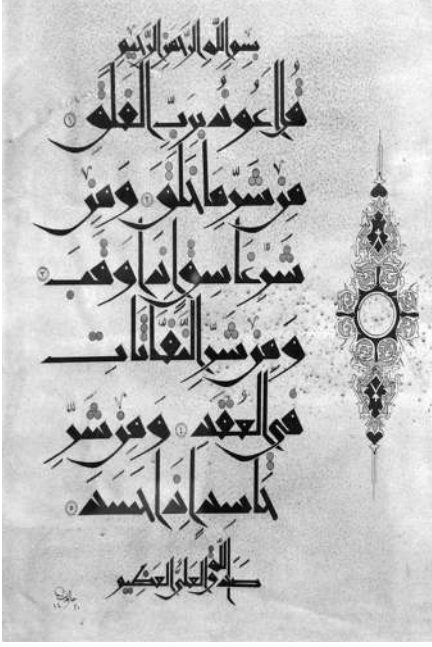 بسم الله الرحمن الرحيم
قُل اعوذ بربِّ الفلق ١
من شرِّ ما خلق ٢ ومن
شرِّ غاسق اذا وقب ٣
ومن شرِّ النَّفَّاثات
في العقد ٤ ومن شرِّ
حاسد اذا حسد ٥
صدق الله العلي العظيم